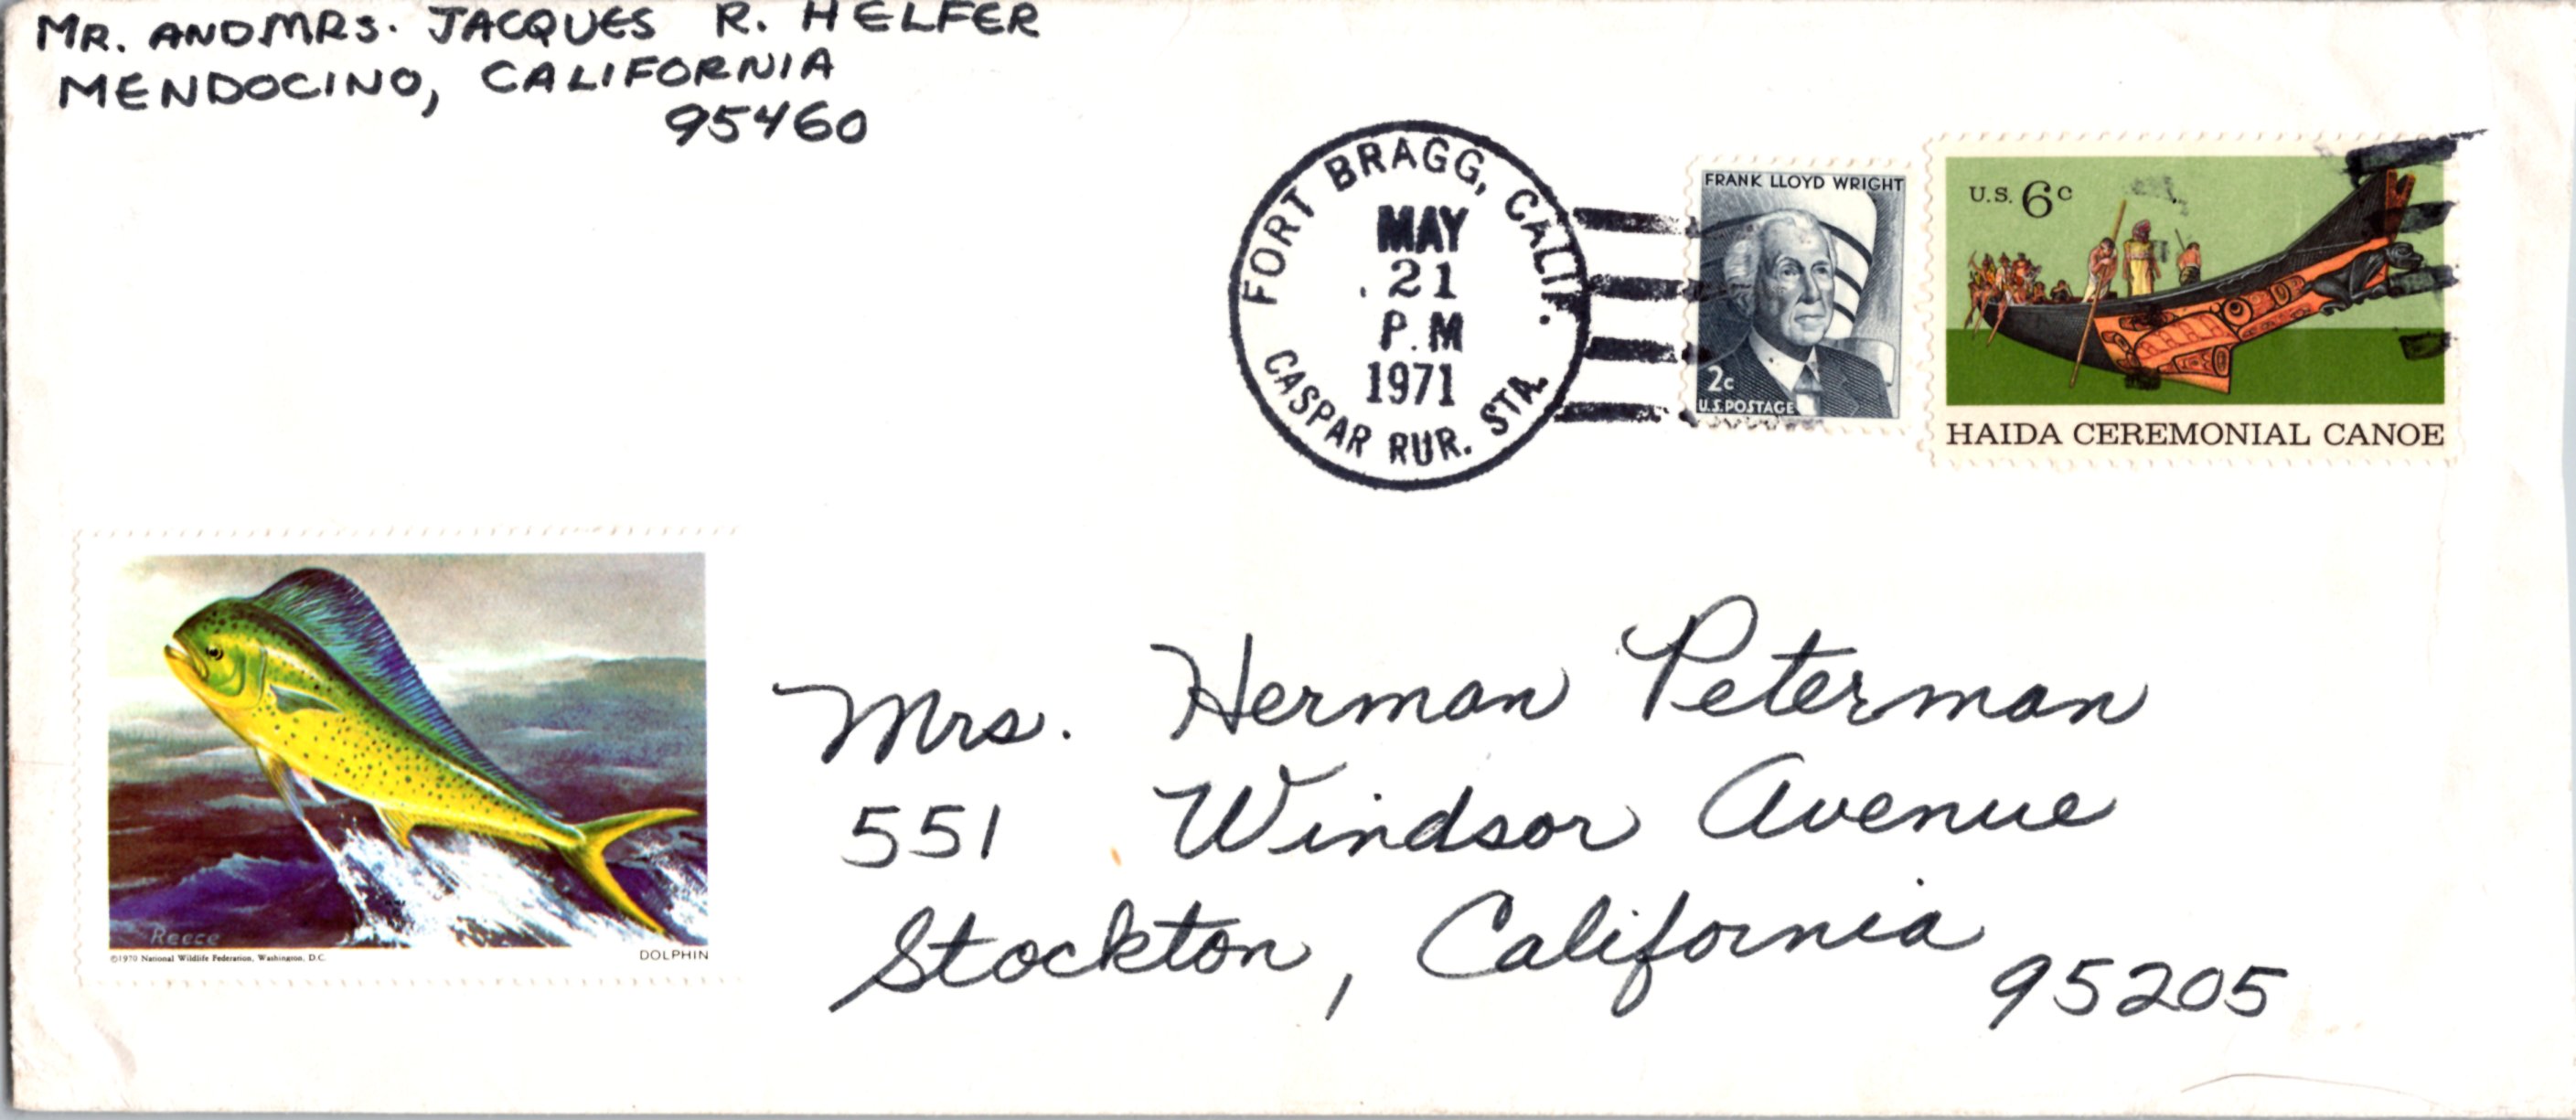 MR. AND MRS. JACQUES R. HELFER
MENDOCINO, CALIFORNIA
95460
FORT BRAGG, CALIF.
MAY
21
P.M
1971
CASPAR RUR. STA.
FRANK LLOYD WRIGHT
2c
U.S. POSTAGE
U.S. 6c
HAIDA CEREMONIAL CANOE
Reece
©1970 National Wildlife Federation, Washington, D.C.
DOLPHIN
Mrs. Herman Peterman
551 Windsor Avenue
Stockton, California
95205